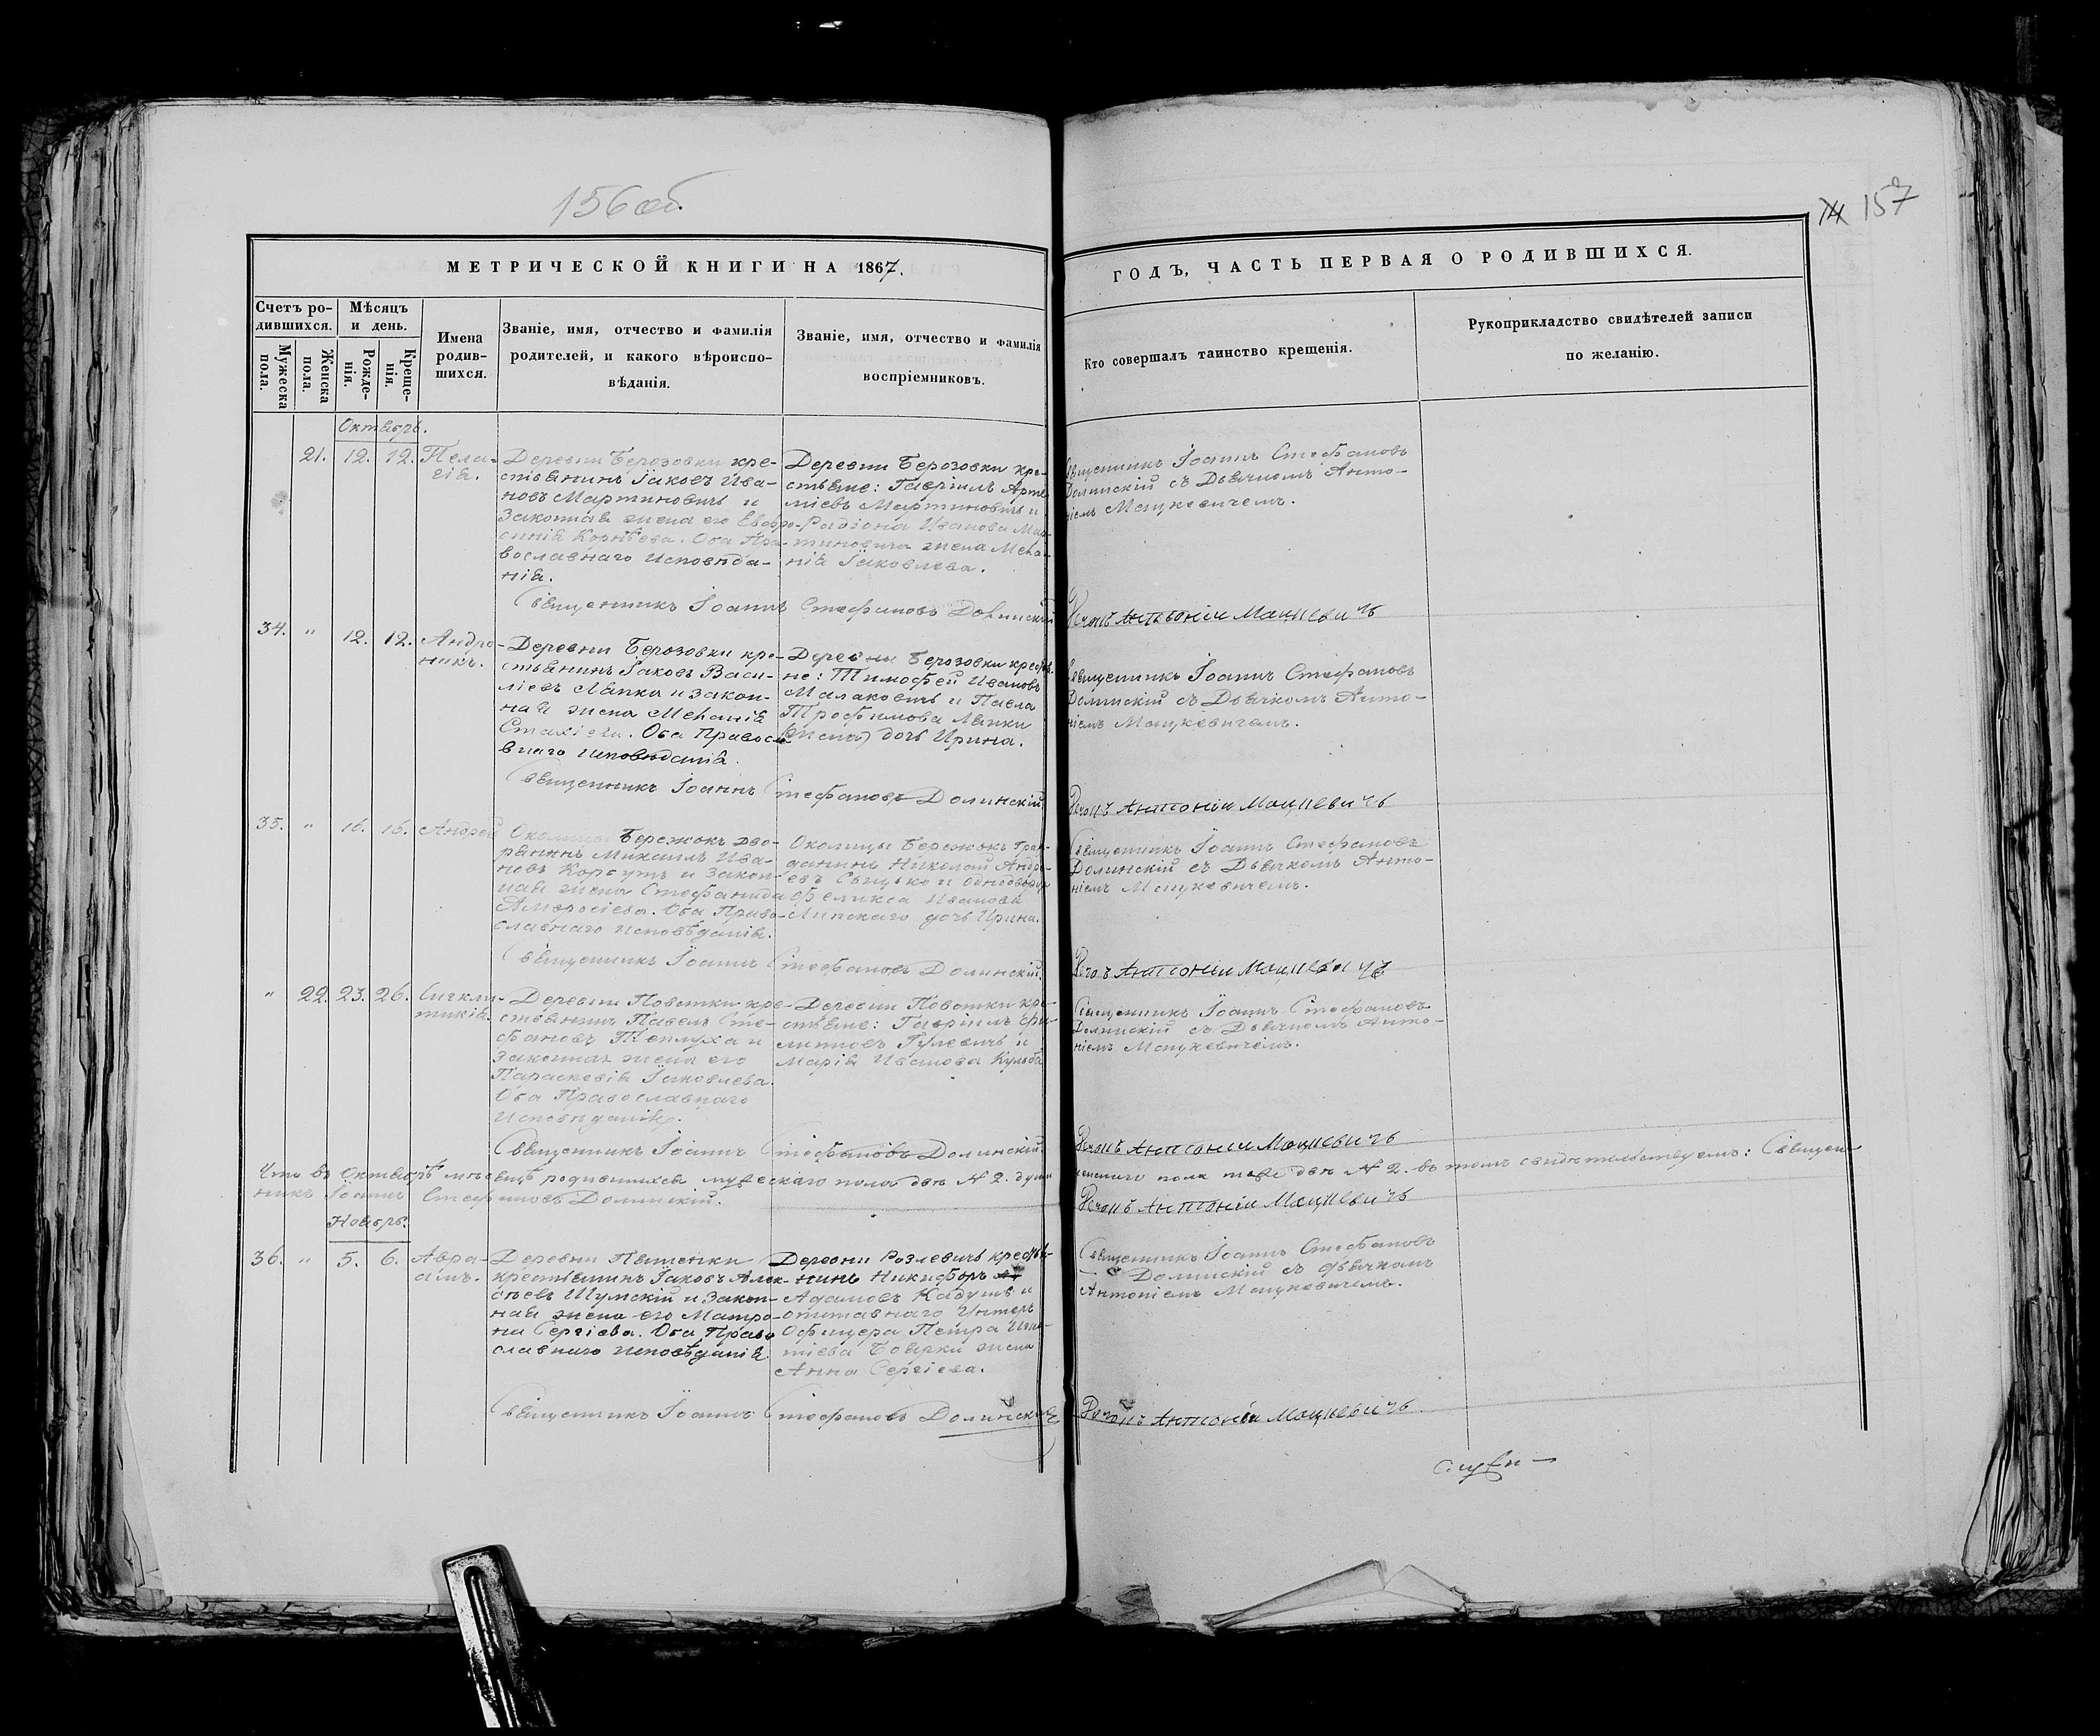 156 об.
74 157
МЕТРИЧЕСКОЙ КНИГИ НА 1867.
ГОДЪ, ЧАСТЬ ПЕРВАЯ О РОДИВШИХСЯ.
Счетъ ро-
дившихся.
Мужеска пола.
Женска пола.
Мѣсяцъ
и день.
Рожде-
нія.
Креще-
нія.
Имена
родив-
шихся.
Званіе, имя, отчество и фамилія
родителей, и какого вѣроиспо-
вѣданія.
Званіе, имя, отчество и фамилія
воспріемниковъ.
Кто совершалъ таинство крещенія.
Рукоприкладство свидѣтелей записи
по желанію.
Октябрь.
21. 12. 12. Пела-
гія.
Деревни Берозовки кре-
стьянинъ Іаковъ Ива-
новъ Мартиновичъ и
Законная жена его Евфро-
синія Корнѣева. Оба Пра-
вославнаго Исповѣда-
нія.
Деревни Берозовки кре-
стьяне: Гавріилъ Арте-
міевъ Мартиновичъ и
Радіона Иванова Мар-
тиновича жена Мела-
нія Іаковлева.
Священникъ Іоаннъ Стефановъ
Долинскій съ Дьячкомъ Анто-
ніемъ Мацкевичемъ.
Священникъ Іоаннъ Стефановъ Долинскій
Антоній Мацкевичъ
34. " 12. 12. Андро-
никъ.
Деревни Берозовки кре-
стьянинъ Іаковъ Васи-
ліевъ Ляпка и закон-
ная жена Меланія
Стахіева. Оба Правосла-
внаго исповѣданія.
Деревни Берозовки крестья-
не: Тимофей Ивановъ
Малаковичъ и Павла
Трофимова Ляпки
(жена) дочь Ирина.
Священникъ Іоаннъ Стефановъ
Долинскій съ Дьячкомъ Анто-
ніемъ Мацкевичемъ.
Священникъ Іоаннъ Стефановъ Долинскій
Антоній Мацкевичъ
35. " 16. 16. Андрей
Околицы Бережокъ дво-
рянинъ Михаилъ Ива-
новъ Корсутъ и закон-
ная жена Стефанида
Амвросіева. Оба Право-
славнаго исповѣданія.
Околицы Бережокъ граж-
данинъ Николай Андре-
евъ и однодворца
Феликса Иванова
Липскаго дочь Ирина.
Священникъ Іоаннъ Стефановъ
Долинскій съ Дьячкомъ Анто-
ніемъ Мацкевичемъ.
Священникъ Іоаннъ Стефановъ Долинскій.
Антоній Мацкевичъ
" 22. 23. 26. Сигкли-
тикія.
Деревни Повятки кре-
стьянинъ Павелъ Сте-
фановъ Теплуха и
Законная жена его
Параскевія Іаковлева.
Оба Православнаго
Исповѣданія.
Деревни Повятки кре-
стьяне: Гавріилъ Фи-
липповъ Гулевичъ и
Марія Иванова Кульба
Священникъ Іоаннъ Стефановъ
Долинскій съ Дьячкомъ Анто-
ніемъ Мацкевичемъ.
Священникъ Іоаннъ Стефановъ Долинскій.
Антоній Мацкевичъ
Что въ Октябрѣ мѣсяцѣ родившихся мужескаго пола двѣ № 2. души женскаго пола тоже двѣ № 2. въ томъ свидѣтельствуемъ: Священ-
никъ Іоаннъ Стефановъ Долинскій.
Антоній Мацкевичъ
Ноябрь.
36. " 5. 6. Авра-
амъ.
крестьянинъ Іаковъ Алек-
сѣевъ Шумскій и Закон-
ная жена его Матро-
на Сергіева. Оба Право
славнаго исповѣданія.
Деревни Розлевичъ крестья-
нинъ Никифоръ
Адамовъ Кадушъ и
отставнаго Унтеръ
Офицера Петра Игна-
тіева жена
Анна Сергіева.
Священникъ Іоаннъ Стефановъ
Долинскій съ дьячкомъ
Антоніемъ Мацкевичемъ.
Священникъ Іоаннъ Стефановъ Долинскій
Антоній Мацкевичъ